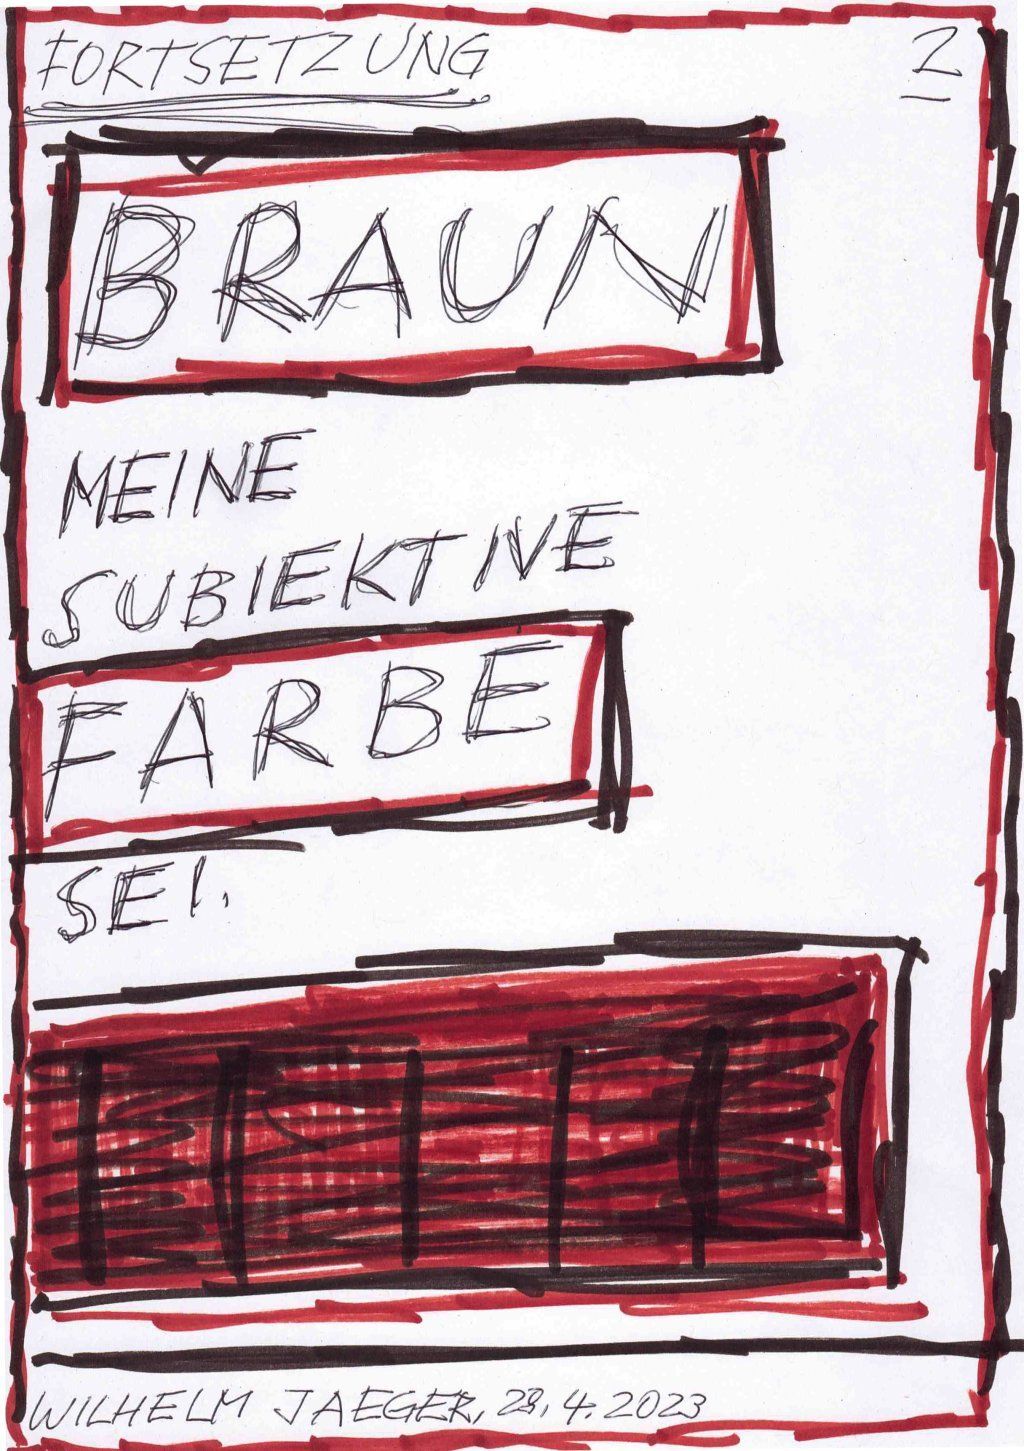 FORTSETZUNG 2
BRAUN
MEINE
SUBIEKTIVE
FARBE
SEI.
WILHELM JAEGER, 28.4.2023